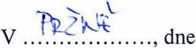 V PRŽNĚ, dne